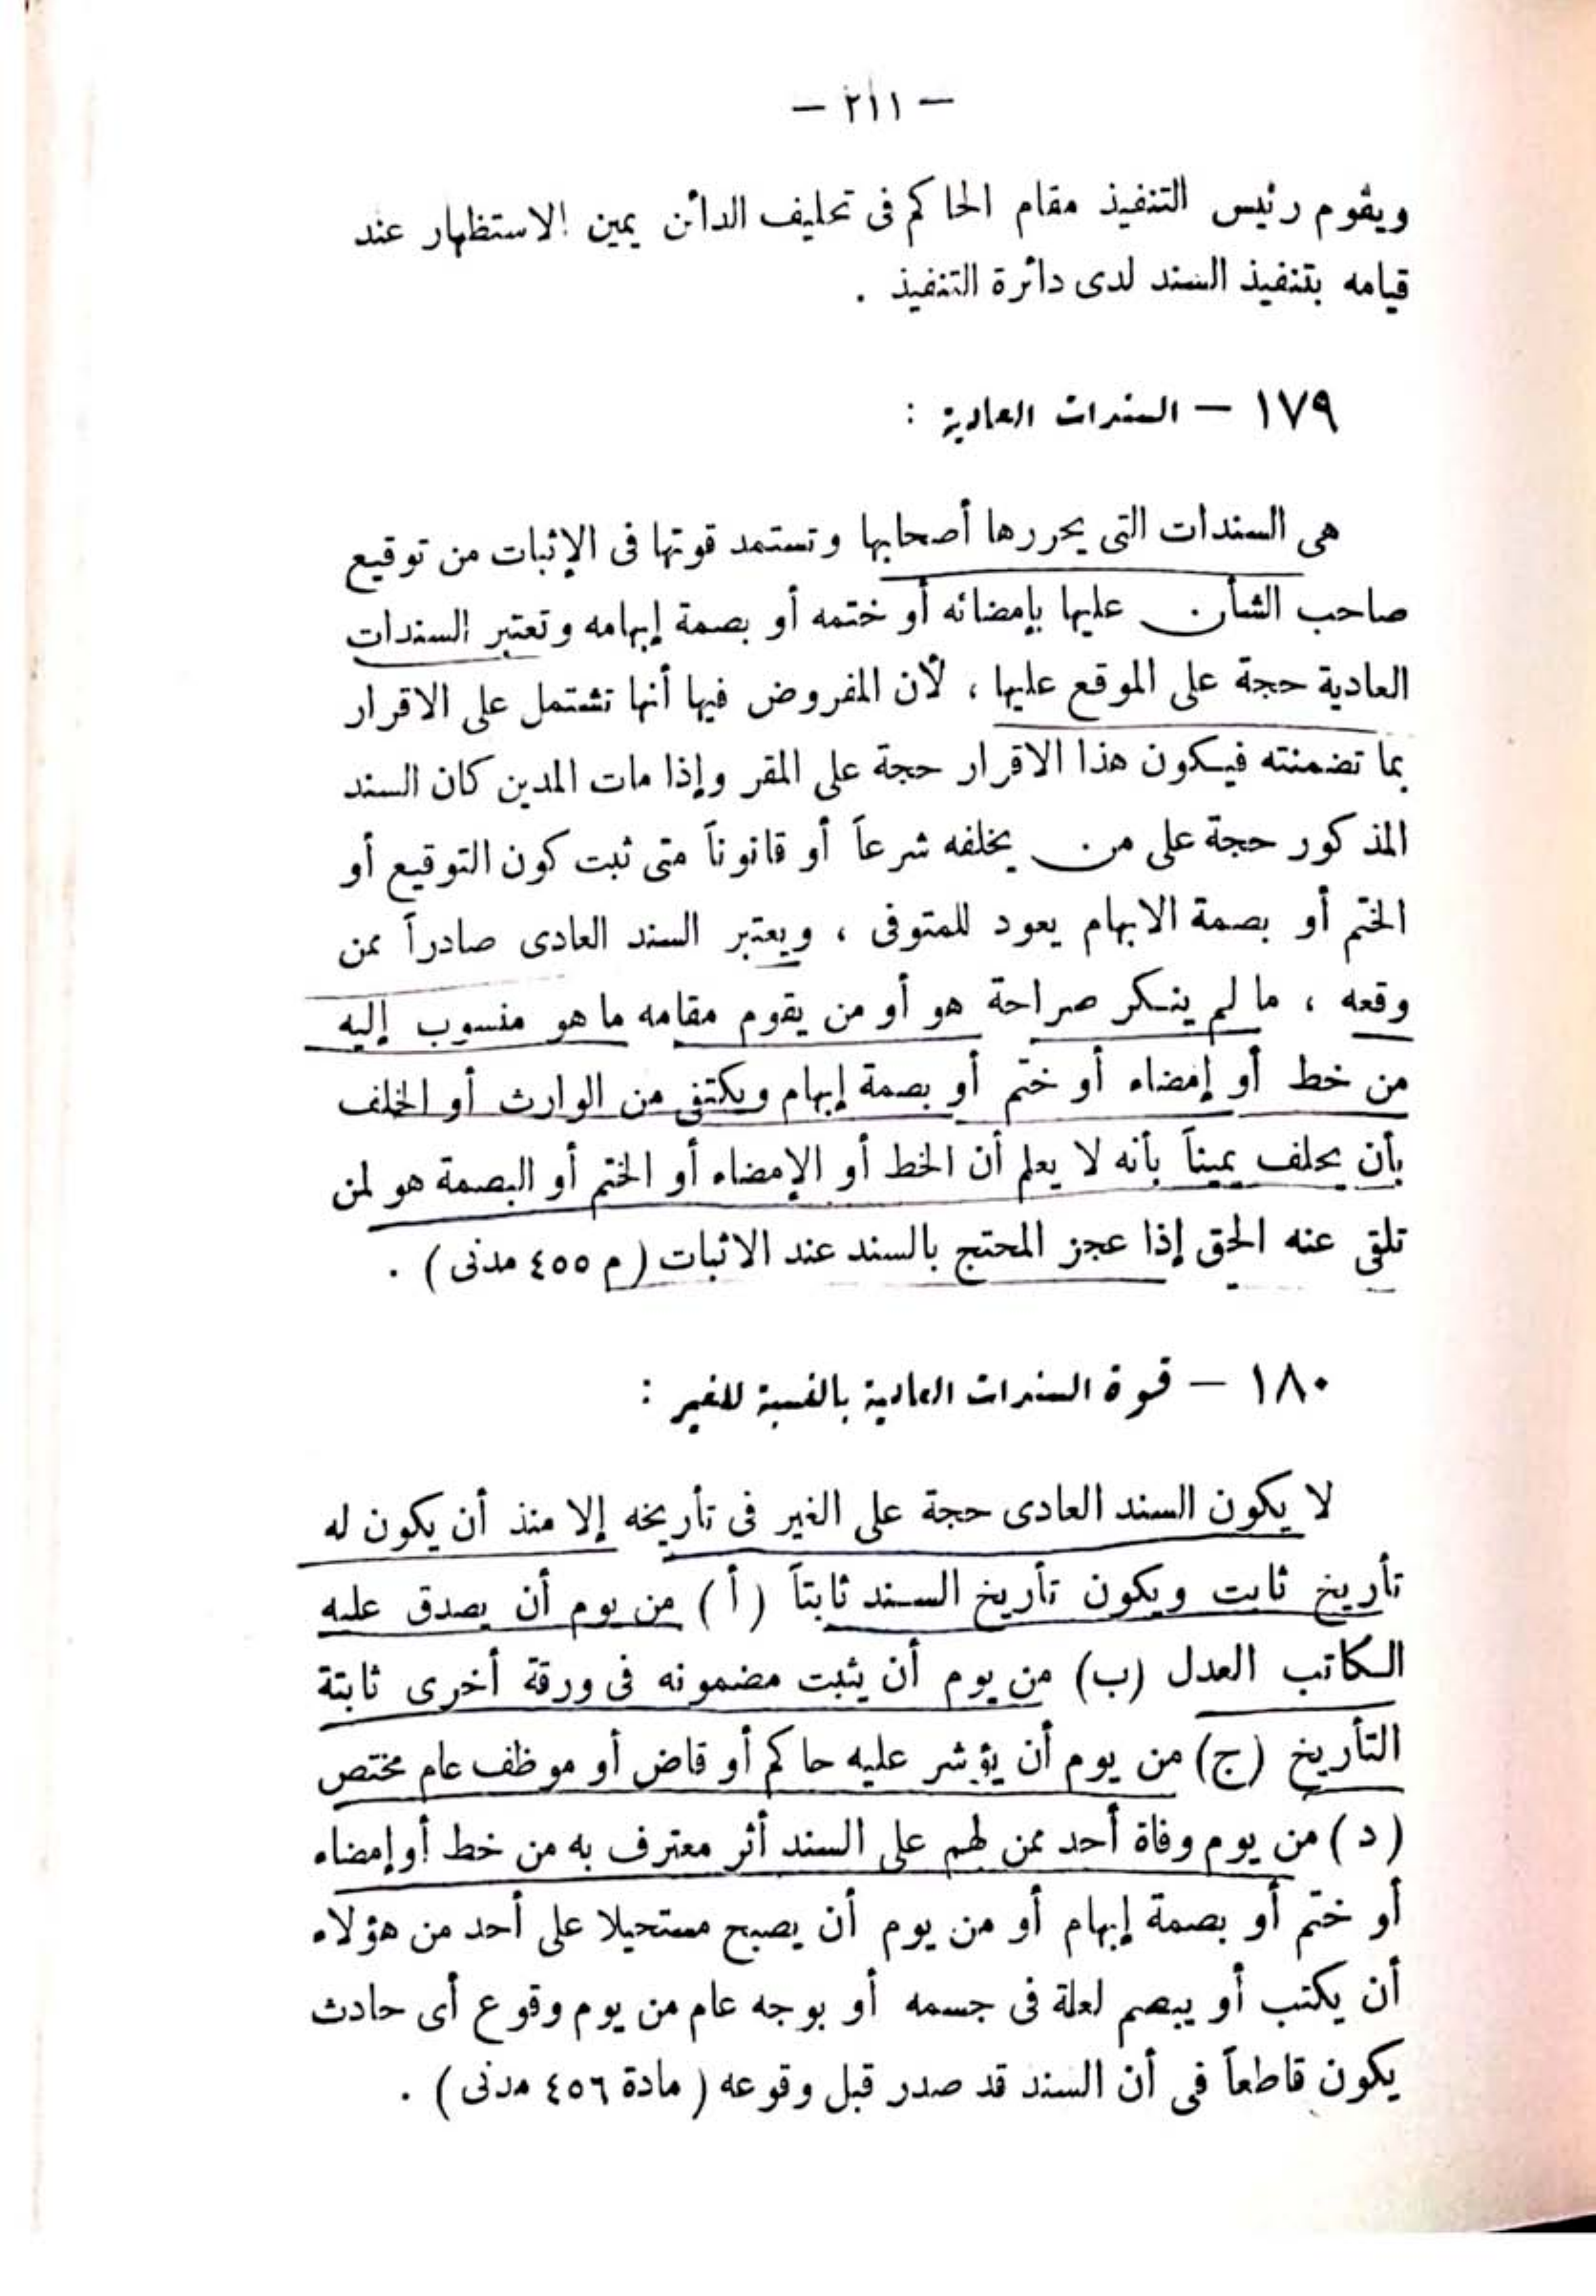 — ٢١١ —
ويقوم رئيس التنفيذ مقام الحاكم فى تحليف الدائن يمين الاستظهار عند
قيامه بتنفيذ السند لدى دائرة التنفيذ .
١٧٩ — السندات العادية :
هى السندات التى يحررها أصحابها وتستمد قوتها فى الإثبات من توقيع
صاحب الشأن عليها بإمضائه أو ختمه أو بصمة إبهامه وتعتبر السندات
العادية حجة على الموقع عليها ، لأن المفروض فيها أنها تشتمل على الاقرار
بما تضمنته فيكون هذا الاقرار حجة على المقر وإذا مات المدين كان السند
المذكور حجة على من يخلفه شرعاً أو قانوناً متى ثبت كون التوقيع أو
الختم أو بصمة الابهام يعود للمتوفى ، ويعتبر السند العادى صادراً ممن
وقعه ، ما لم ينكر صراحة هو أو من يقوم مقامه ما هو منسوب إليه
من خط أو إمضاء أو ختم أو بصمة إبهام ويكتفى من الوارث أو الخلف
بأن يحلف يميناً بأنه لا يعلم أن الخط أو الإمضاء أو الختم أو البصمة هو لمن
تلقى عنه الحق إذا عجز المحتج بالسند عند الاثبات ( م ٤٥٥ مدنى ) .
١٨٠ — قوة السندات العادية بالنسبة للغير :
لا يكون السند العادى حجة على الغير فى تأريخه إلا منذ أن يكون له
تأريخ ثابت ويكون تأريخ السند ثابتاً ( أ ) من يوم أن يصدق عليه
الكاتب العدل (ب) من يوم أن يثبت مضمونه فى ورقة أخرى ثابتة
التأريخ (ج) من يوم أن يؤشر عليه حاكم أو قاض أو موظف عام مختص
( د ) من يوم وفاة أحد ممن لهم على السند أثر معترف به من خط أو إمضاء
أو ختم أو بصمة إبهام أو من يوم أن يصبح مستحيلا على أحد من هؤلاء
أن يكتب أو يبصم لعلة فى جسمه أو بوجه عام من يوم وقوع أى حادث
يكون قاطعاً فى أن السند قد صدر قبل وقوعه ( مادة ٤٥٦ مدنى ) .